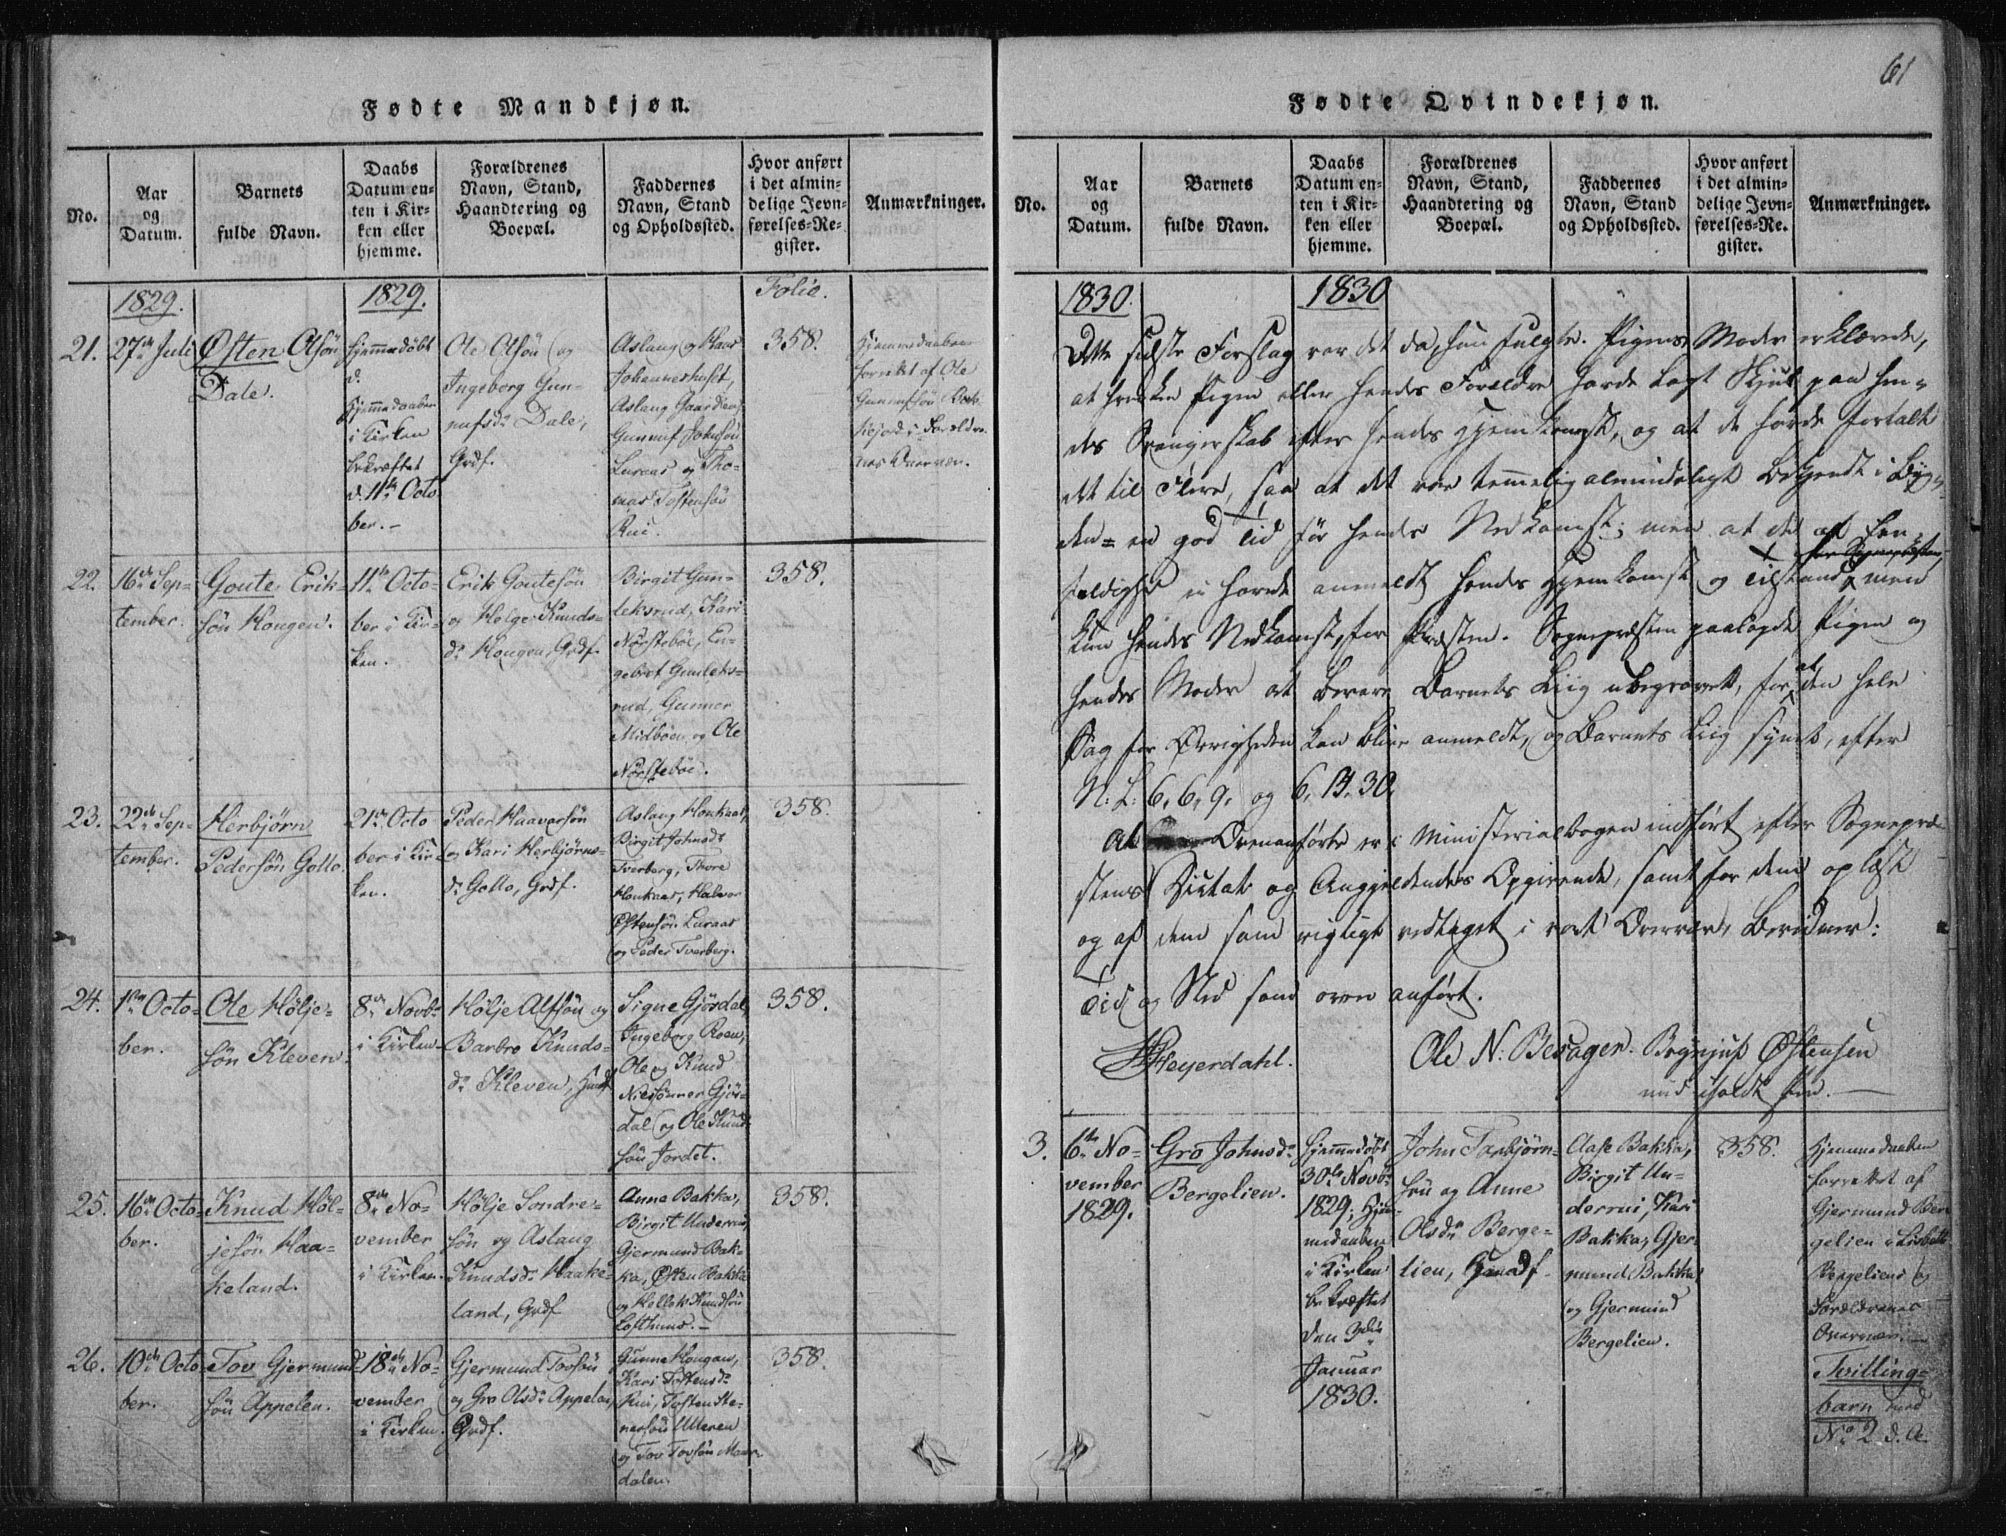 Fødte Mandkjøn.
No.
Aar
og
Datum.
Barnets
fulde Navn.
Daabs
Datum en-
ten i Kir-
ken eller
hjemme.
Forældrenes
Navn, Stand,
Haandtering og
Boepæl.
Faddernes
Navn, Stand
og Opholdssted.
Hvor anført
i det almin-
delige Jevn-
førelses-Re-
gister.
Anmærkninger.
1829.
1829.
Folio.
21.
27de Juli
Østen Olsön
Dale.
Hjemmedöbt
d.
Hjemmedaaben
i Kirken
bekræftet
d. 11te Octo
ber.-
Ole Olsön og
Ingeborg Gun-
nufsdr Dale,
Grdf.
Aslaug og Haas
Johanneshuset,
Aslaug Gaardien,
Gunnuf Johnsön
Luraas og Tho-
mas Tostensön
Rui.
358.
Hjemmedaaben
forrettet af Ole
Gunnufsön
i Forældre-
nes Overvær.
22.
16de Sep-
tember.
Goute Erik-
sön Hougen.
11te Octo-
ber i Kir-
ken.
Erik Goutesön
og Helge Knuds-
dr Hougen, Grdf.
Birgit Gun-
leksrud, Kari
Nörstebõe, En-
gebret Gunleks-
rud, Gunner
Midböen og Ole
Nörsteböe.
358.
23.
22de Sep-
tember.
Herbjørn
Pedersön Gollo.
21de Octo
ber i Kir-
ken.
Peder Haavarsön
og Kari Herbjörns-
dr Gollo, Grdf.
Aslaug Honkaas,
Birgit Johnsdr
Tverberg, Thore
Honkaas, Halvor
Østensön Luraas
og Peder Tverberg.
358.
24.
1ste Octo-
ber.
Ole Hölje-
sön Kleven.
8de Novbr
i Kirken.
Hölje Alfsön og
Barbro Knuds-
dr Kleven, Huusf
Signe Gjösdal,
Ingeborg Roen,
Ole og Knud
Nielsönner Gjös-
dal og Ole Knud-
sön Jordet.
358.
25.
16de Octo-
ber.
Knud Höl-
jesön Haa-
keland.
8de No-
vember
i Kirken.
Hölje Sondre-
sön og Aslaug
Knudsdr Haake-
land, Grdf
Anne Bakka,
Birgit Underrui,
Gjermund Bak-
ka, Østen Bakka
og Kjettel Knudsön
Lofthuus.-
358.
26.
10de Octo
ber.
Tov Gjermund-
sön Appelen.
18de No-
vember
i Kirken.
Gjermund Tovsön
og Gro Olsdr Appelen,
Grdf.
Gunne Hougan,
Kari Tostensdr
Rui, Tosten Ste-
nersön Uleren
og Tov Tovsön Maar-
dalen.
358.
61
Fødte Qvindekjøn.
No.
Aar
og
Datum.
Barnets
fulde Navn.
Daabs
Datum en-
ten i Kir-
ken eller
hjemme.
Forældrenes
Navn, Stand,
Haandtering og
Boepæl.
Faddernes
Navn, Stand
og Opholdssted.
Hvor anført
i det almin-
delige Jevn-
førelses-Re-
gister.
Anmærkninger.
1830.
1830
Dette sidste Forslag var det da, hun fulgte. Pigens Moder erklærede,
at hverken Pigen eller hendes Forældre havde lagt Skjul paa hen-
des Svangerskab efter hendes Hjemkomst, og at de havde fortalt
det til Flere, saa at det var temmelig almindeligt bekjendt i Byg-
den - en god Tid för hendes Nedkomst; men at de af Een-
foldighed ei havde anmeldt hendes Hjemkomst og Tilstand for Sognepræsten, men
kun hendes Nedkomst, for Præsten. Sognepræsten paalagde Pigen og
hendes Moder at bevare Barnets Liig ubegravet, for at den hele
Sag for Øvrigheden kan blive anmeldt, og Barnets Liig synet, efter
N: L: 6, 6, 9, og 6, 14, 30.
At Ovenanførte er i Ministerialbogen indfört efter Sognepræ-
stens Dictat og Angjeldendes Opgivende, samt for dem oplæst
og af dem som rigtigt vedtaget i vort Overvær, bevidner:
Tid og Sted som oven anfört.
Heyerdahl.
Ole N: Besager. Brynjuf Østensen
med iholdt Pen.
3.
6te No-
vember
1829.
Gro Johnsdr
Bergelien.
Hjemmedöbt
30te Novbr
1829; Hjem-
medaaben
i Kirken
bekræftet
den 3die
Januar
1830.
John Torbjörn-
sön og Anne
Olsdr Berge-
lien, Huusf.
Aase Bakka,
Birgit Un-
derrui, Kari
Bakka, Gjer-
mund Bakka
og Gjermund
Bergelien.
358.
Hjemmedaaben
forrettet af
Gjermund Ber-
gelien i Lisbeth
Bergeliens og
Forældrenes
Overvær.-
Tvilling-
barn med
No 2 d. A.